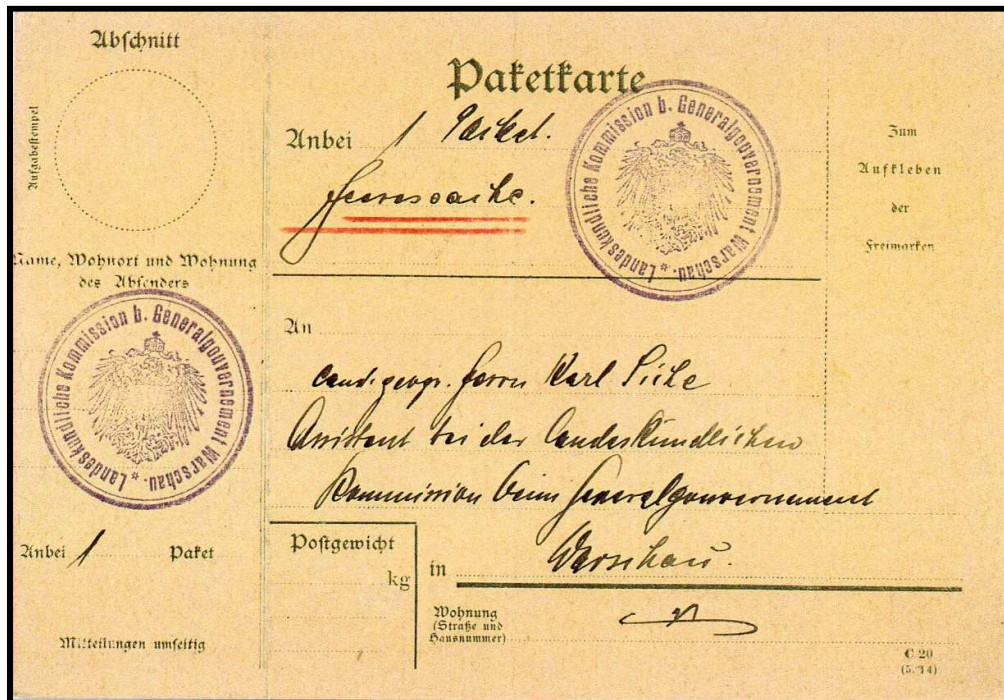 Abschnitt
Aufgabestempel
Name, Wohnort und Wohnung
des Absenders
Landeskundliche Kommission b. Generalgouvernement Warschau. *
Anbei 1 Paket
Mitteilungen umseitig
Paketkarte
Anbei 1 Paket.
Heeressache.
Landeskundliche Kommission b. Generalgouvernement Warschau. *
Zum
Aufkleben
der
Freimarken
An
cand. geogr. Herrn Karl
Assistent bei der Landeskundlichen
Kommission beim Generalgouvernement
in Warschau.
Postgewicht
kg
Wohnung
(Straße und
Hausnummer)
C 20
(5. 14)